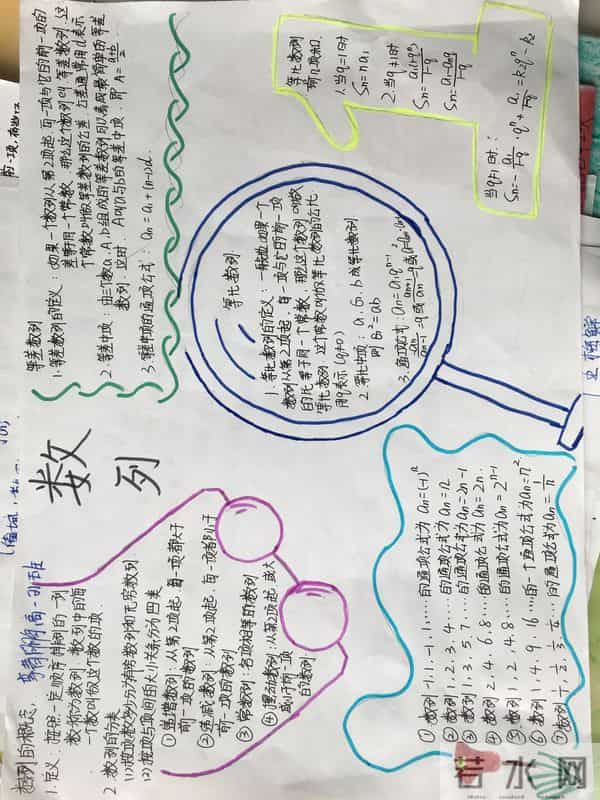 数列
数列的概念
1. 定义：按照一定顺序排列的一列
数称为数列，数列中的每
一个数叫做这个数的项.
2. 数列的分类
(1)按项数数列分为有穷数列和无穷数列
(2)按项与项间的大小关系分为四类
①递增数列：从第2项起，每一项都大于
前一项的数列
②递减数列：从第2项起，每一项都小于
前一项的数列
③常数列：各项相等的数列
④摆动数列：从第2项起，
的数列.
等差数列
1. 等差数列的定义：如果一个数列从第2项起，每一项与它的前一项的
差等于同一个常数，那么这个数列叫等差数列，这
个常数叫做等差数列的公差，公差通常用d表示
2. 等差中项：由三个数a，A，b组成的等差数列可以看成最简单的等差
数列. 这时，A叫a与b的等差中项. 即 A=a+b/2
3. 通项公式：an=a1+(n-1)d.
等比数列
1. 等比数列的定义：一般地，如果一个
数列从第2项起，每一项与它的前一项
的比等于同一个常数，那么这个数列叫做
等比数列，这个常数叫做等比数列的公比
用q表示(q≠0)
2. 等比中项：a，G，b成等比数列
则 G²=ab
3. 通项公式：an=a1qⁿ⁻¹
等比数列
前n项和
1. 当q=1时
Sn=na1
2. 当q≠1时
Sn=a1(1-qⁿ)/1-q
Sn=a1-anq/1-q
当q≠1时：
Sn=-a1/1-q·qⁿ+a1/1-q=k1·qⁿ-k2
①数列-1,1,-1,1,…的通项公式为an=(-1)ⁿ
②数列1,2,3,4…的通项公式为an=n
③数列1,3,5,7…的通项公式为an=2n-1
④数列2,4,6,8…的通项公式为an=2n.
⑤数列1,2,4,8…的通项公式为an=2ⁿ⁻¹
⑥数列1,4,9,16…的一个通项公式为an=n².
⑦数列1,1/2,1/3,1/4…的通项公式为an=1/n
若水网